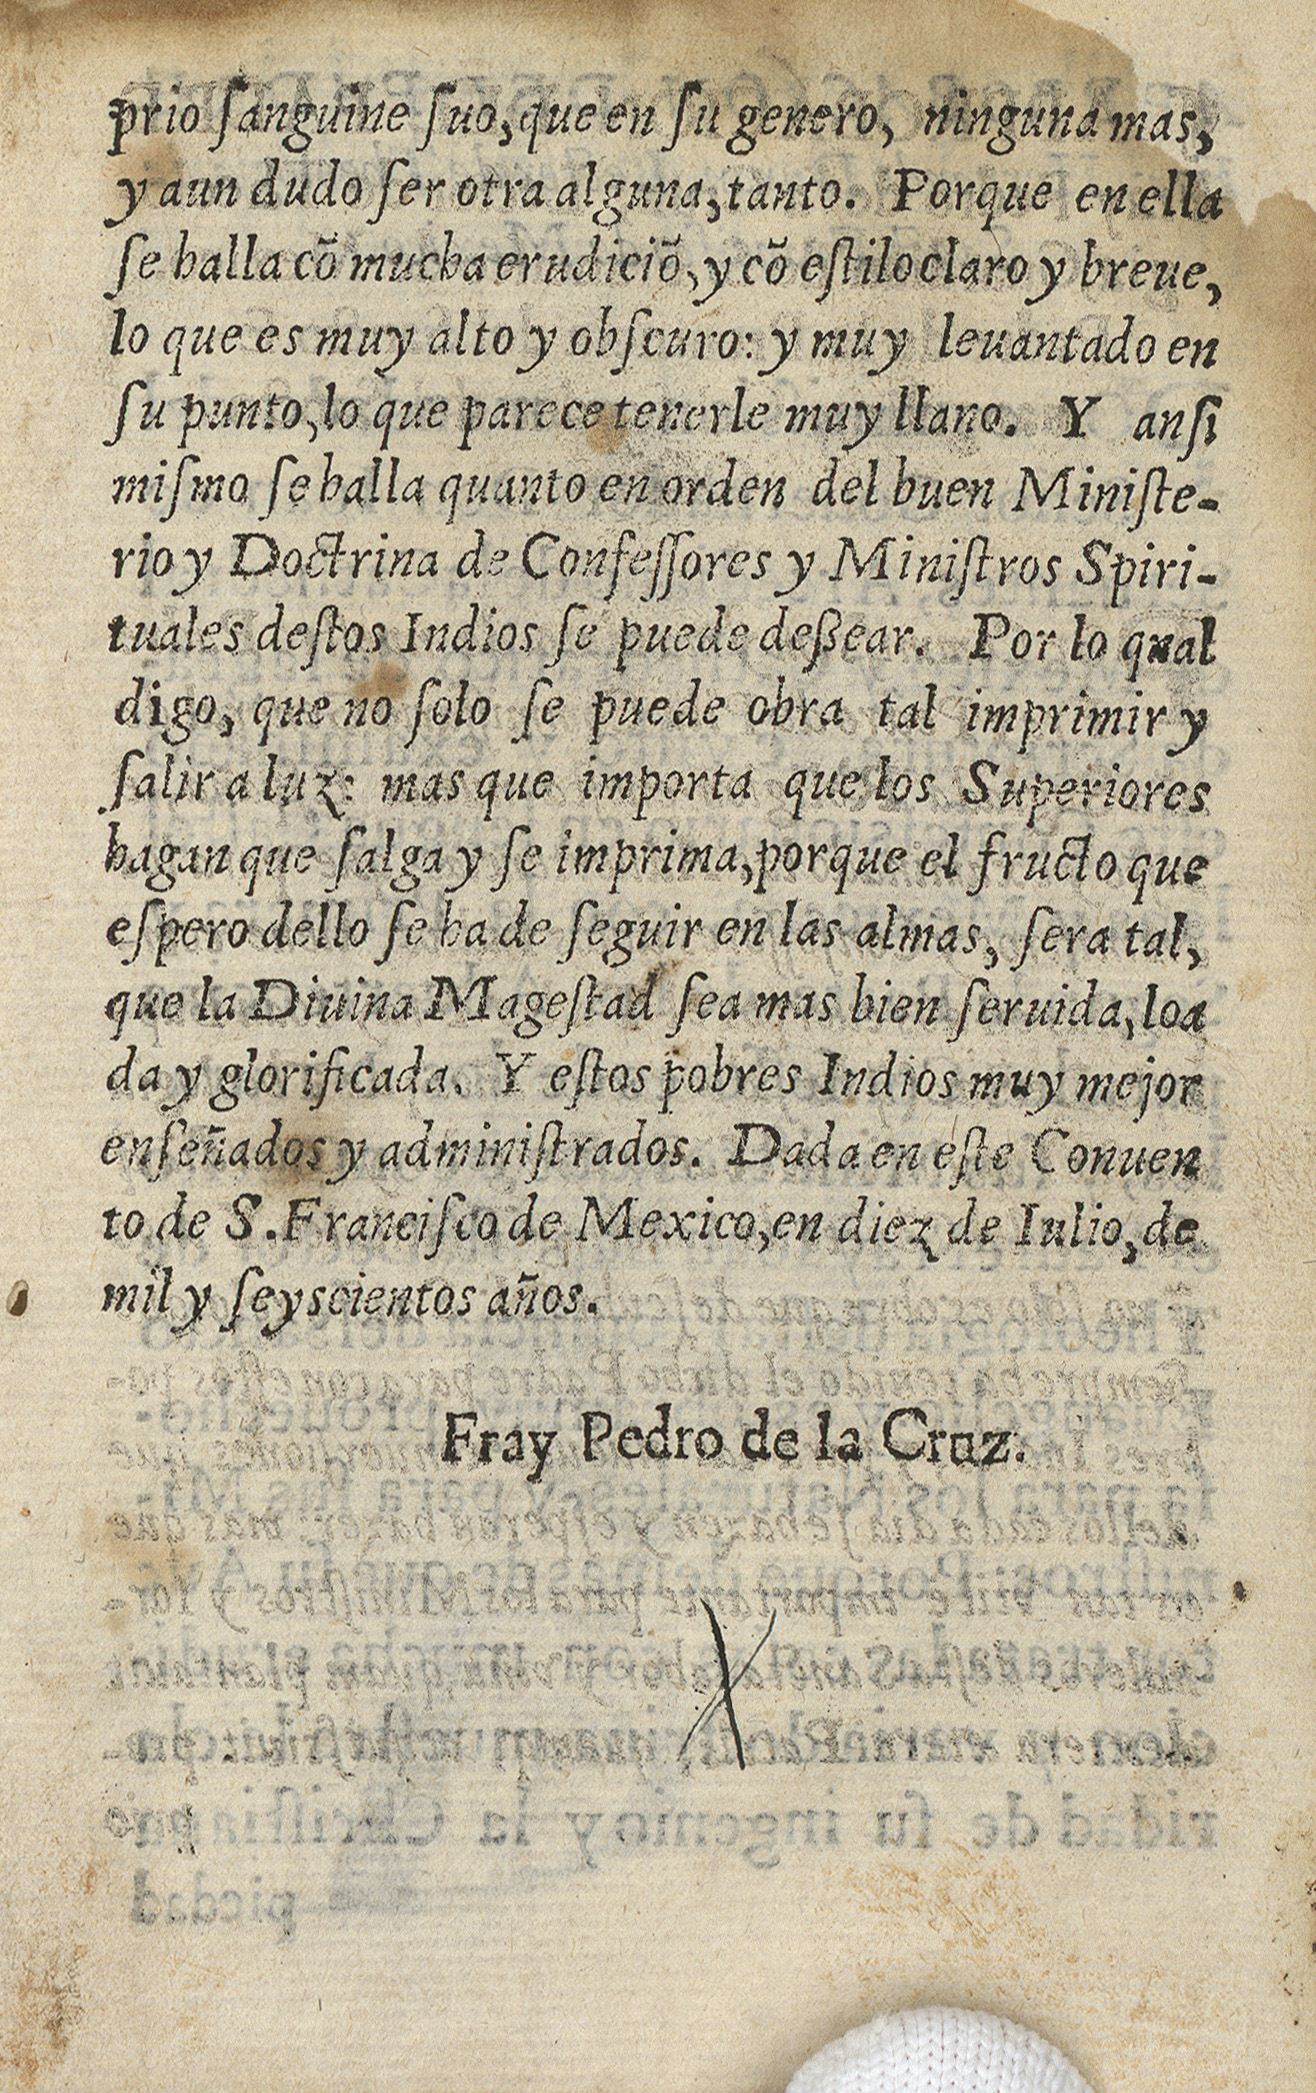 prio ſanguine ſuo, que en ſu genero, ninguna mas,
y aun dudo ſer otra alguna, tanto. Porque en ella
ſe halla cõ mucha erudiciõ, y cõ eſtilo claro y breue,
lo que es muy alto y obſcuro: y muy leuantado en
ſu punto, lo que parece tenerle muy llano. Y anſi
miſmo ſe halla quanto en orden del buen Miniſte-
rio y Doctrina de Confeſſores y Miniſtros Spiri-
tuales deſtos Indios ſe puede deßear. Por lo qual
digo, que no ſolo ſe puede obra tal imprimir y
ſalir a luz: mas que importa que los Superiores
hagan que ſalga y ſe imprima, porque el fructo que
eſpero dello ſe ha de ſeguir en las almas, ſera tal,
que la Diuina Mageſtad ſea mas bien ſeruida, loa
da y glorificada. Y eſtos pobres Indios muy mejor
enſeñados y adminiſtrados. Dada en eſte Conuen
to de S. Franciſco de Mexico, en diez de Iulio, de
mil y ſeyscientos años.
Fray Pedro de la Cruz.